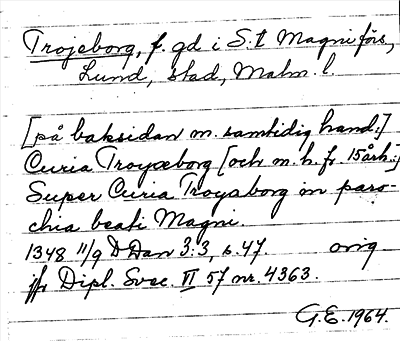 Trojeborg, f. gd i S:t Magni förs,
Lund, stad, Malm. l.
[på baksidan m. samtidig hand:]
Curia Troyæborg [och m. h. fr. 15 årh:]
Super Curia Troyaborg in paro-
chia beati Magni.
1348 11/9 D Dan 3:3, s. 47. orig
jfr Dipl. Svec. VI 57 nr. 4363.
G.E. 1964.